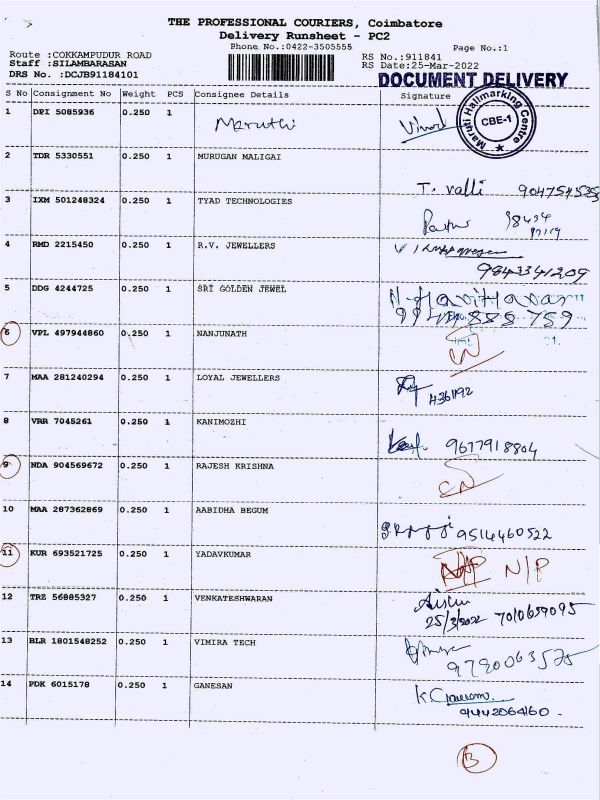 THE PROFESSIONAL COURIERS, Coimbatore
Delivery Runsheet - PC2
Phone No.:0422-3505555
Page No.:1
Route :COKKAMPUDUR ROAD
Staff :SILAMBARASAN
DRS No. :DCJB91184101
RS No.:911841
RS Date:25-Mar-2022
DOCUMENT DELIVERY
S No Consignment No Weight PCS Consignee Details Signature
Maruti Hallmarking Centre
CBE-1
1 DPI 5085936 0.250 1 Maruthi
2 TDR 5330551 0.250 1 MURUGAN MALIGAI
T. Valli
3 IXM 501248324 0.250 1 TYAD TECHNOLOGIES
4 RMD 2215450 0.250 1 R.V. JEWELLERS
9843341209
5 DDG 4244725 0.250 1 SRI GOLDEN JEWEL
6 VPL 497944860 0.250 1 NANJUNATH
7 MAA 281240294 0.250 1 LOYAL JEWELLERS
8 VRR 7045261 0.250 1 KANIMOZHI
9677918804
9 NDA 904569672 0.250 1 RAJESH KRISHNA
10 MAA 287362869 0.250 1 AABIDHA BEGUM
9514460522
11 KUR 693521725 0.250 1 YADAVKUMAR
N/P
12 TRZ 56885327 0.250 1 VENKATESHWARAN
25/3/2022 7010659095
13 BLR 1801548252 0.250 1 VIMIRA TECH
14 PDK 6015178 0.250 1 GANESAN
9442064160.